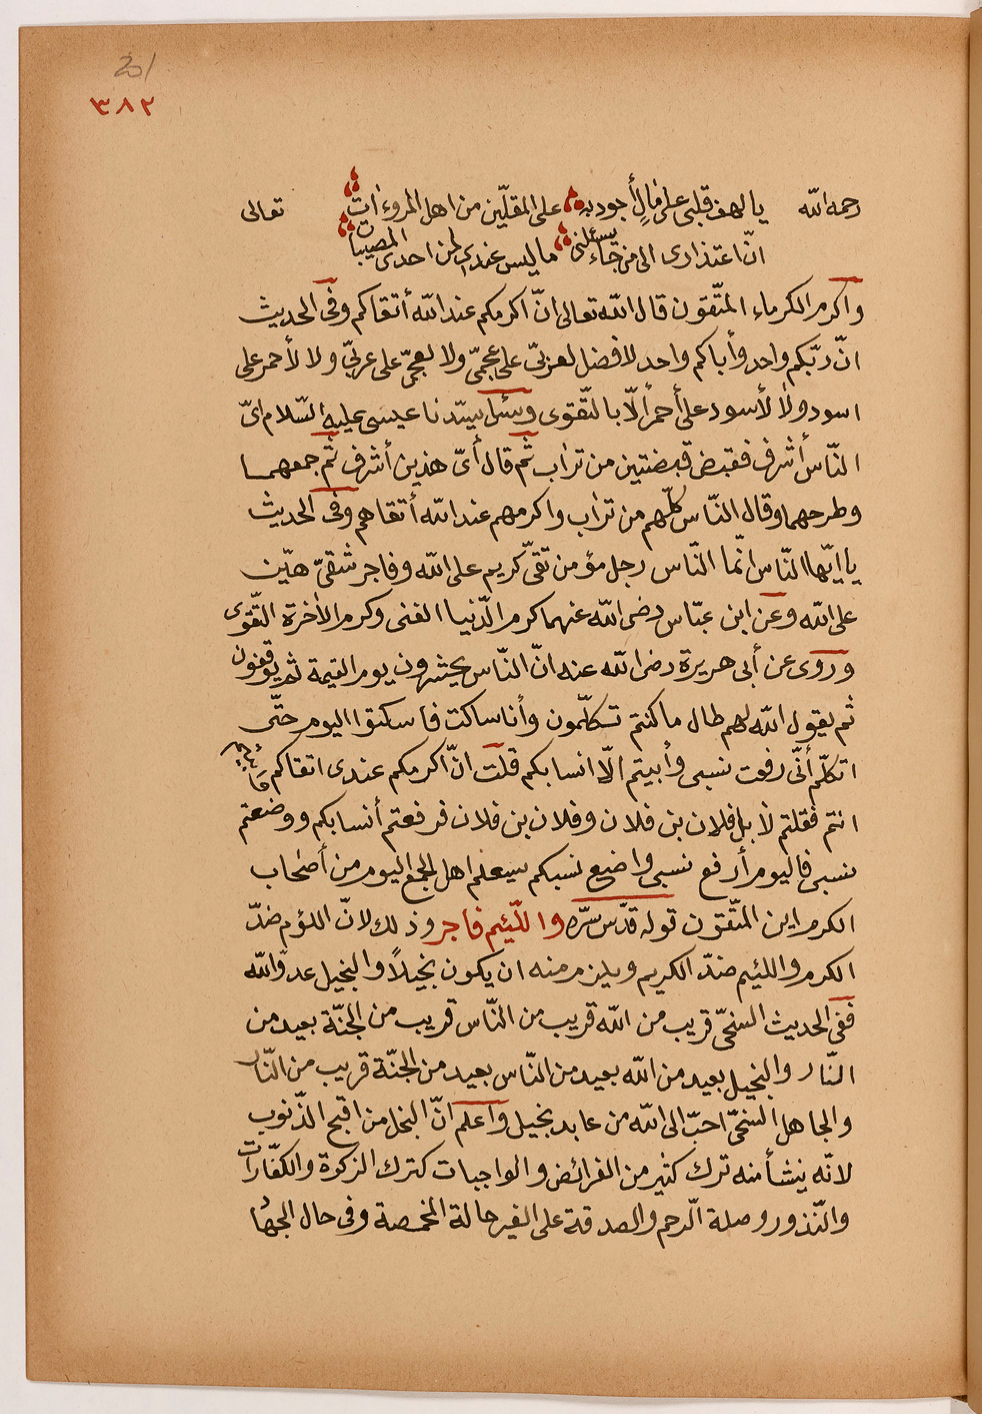 201
٣٨٢
رحمه الله يا لهف قلبى على مال أجود به على المقلّين من اهل المروءات تعالى
انّ اعتذارى الى من جاء يسئلنى ما ليس عندى لمن احدى المصيبات
واكرم الكرماء المتّقون قال الله تعالى انّ اكرمكم عند الله أتقاكم وفى الحديث
انّ ربّكم واحد وأباكم واحد لا فضل لعربىّ على عجمىّ ولا لعجمىّ على عربىّ ولا لأحمر على
اسود ولا لأسود على أحمر ألّا بالتّقوى وسئل سيّدنا عيسى عليه السّلام اىّ
النّاس أشرف فقبض قبضتين من تراب ثم قال أىّ هذين أشرف ثم جمعهما
وطرحهما وقال النّاس كلّهم من تراب واكرمهم عند الله أتقاهم وفى الحديث
يا ايّها النّاس انّما النّاس رجل مؤمن تقىّ كريم على الله وفاجر شقىّ هيّن
على الله وعن ابن عبّاس رضى الله عنهما كرم الدّنيا الغنى وكرم الاخرة التّقوى
وروى عن أبى هريرة رضى الله عنه انّ النّاس يحشرون يوم القيمة ثم يوقفون
ثم يقول الله لهم طال ما كنتم تكلّمون وأنا ساكت فاسكتوا اليوم حتّى
اتكلّم أنّى رفعت نسبى وأبيتم الّا انسابكم قلت انّ اكرمكم عندى اتقاكم
انتم فقلتم لا بل فلان بن فلان وفلان بن فلان فرفعتم أنسابكم ووضعتم
نسبى فاليوم أرفع نسبى واضع نسبكم سيعلم اهل الجمع اليوم من أصحاب
الكرم اين المتّقون قوله قدّس سرّه واللّئيم فاجر وذلك لانّ اللؤم ضدّ
الكرم واللئيم ضدّ الكريم ويلزم منه ان يكون بخيلاً والبخيل عدوّ الله
ففى الحديث السّخىّ قريب من الله قريب من النّاس قريب من الجنّة بعيد من
النّار والبخيل بعيد من الله بعيد من النّاس بعيد من الجنّة قريب من النّار
والجاهل السّخىّ احبّ الى الله من عابد بخيل واعلم انّ البخل من اقبح الذّنوب
لانّه ينشأ منه ترك كثير من الفرائض والواجبات كترك الزكوة والكفّارات
والنّذور وصلة الرّحم والصدقة على الغير حالة المخمصة وفى حال الجهاد